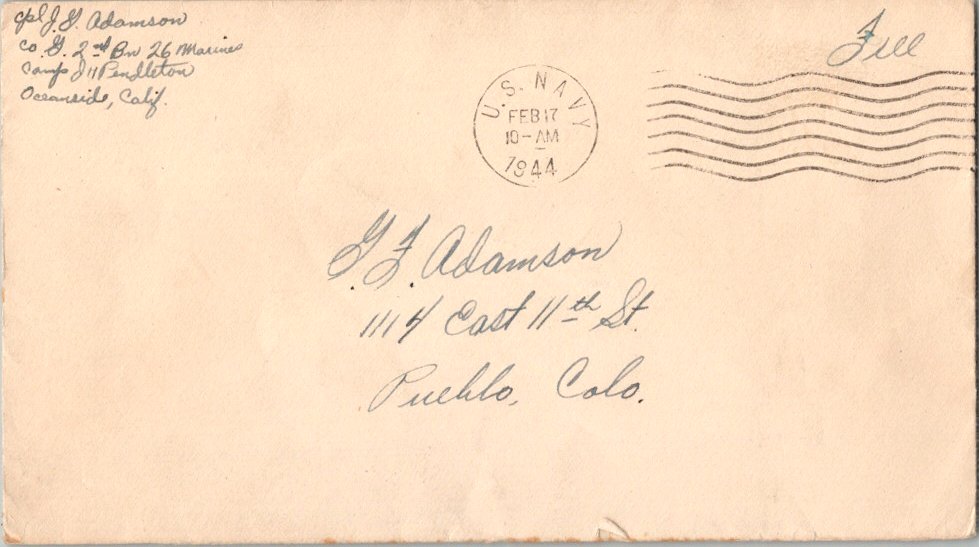 Cpl J. G. Adamson
Co. G. 2nd Bn 26 Marines
Camp J H Pendleton
Oceanside, Calif.
Free
U.S. NAVY
FEB 17
10-AM
1944
G. F. Adamson
1114 East 11th St.
Pueblo, Colo.